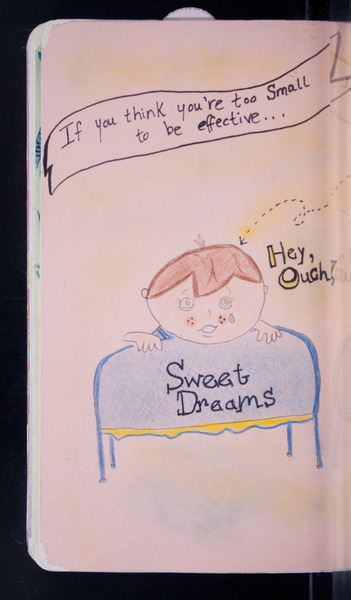 If you think you're too Small
to be effective...
Hey,
Ouch!
Sweet
Dreams